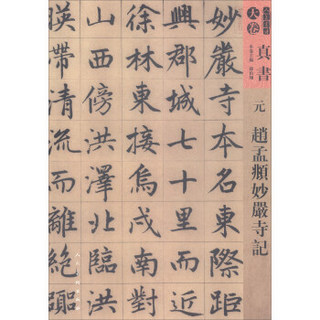 大卷
真書
元
趙孟頫妙嚴寺記
妙嚴寺本名東際距
興郡城七十里而近
徐林東接烏戍南對
山西傍洪澤北臨洪
暎帶清流而離絕囂